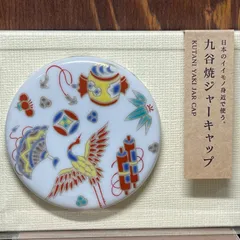 日本のイイモノ身近で使う。
九谷焼ジャーキャップ
KUTANI YAKI JAR CAP